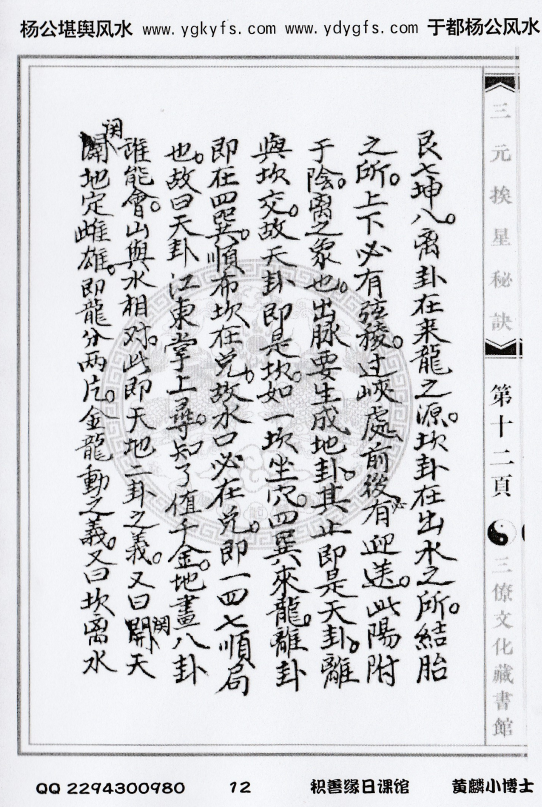 杨公堪舆风水 www.ygkyfs.com www.ydygfs.com 于都杨公风水
三元挨星秘訣
第十二頁
三僚文化藏書館
艮七坤八。离卦在来龙之源。坎卦在出水之所。結胎
之所。上下必有弦稜。过峽處前後必有迎送。此陽附
于陰。离之象也。出脉要生成地卦。其止即是天卦。離
與坎交。故天卦即是坎。如一坎坐穴。四巽來龍。離卦
即在四巽。順布坎在兑。故水口必在兑。即一四七順局
也。故曰天卦江東掌上尋。知了值千金。地畫八卦
誰能會。山與水相对。此即天地二卦之義。又曰関天
関地定雌雄。即龍分兩片。金龍動之義。又曰坎离水
QQ 2294300980 12 积善缘日课馆 黄麟小博士